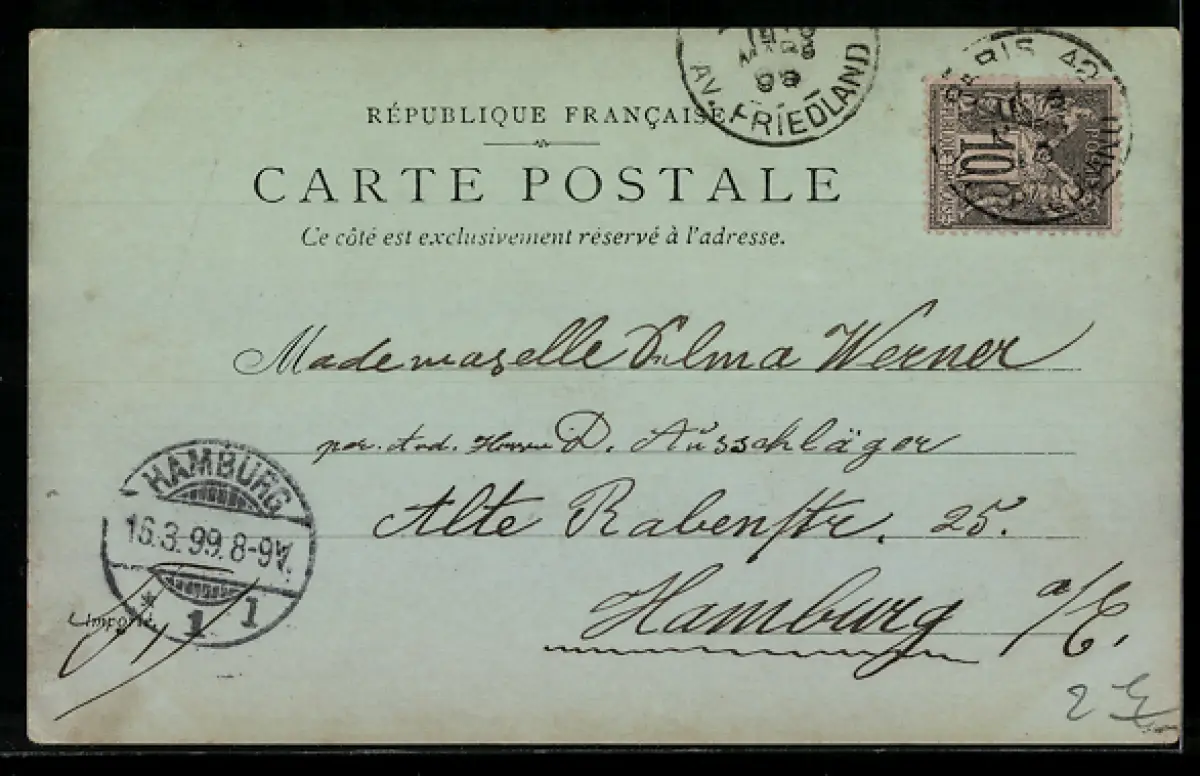 MARS
99
AV. FRIEDLAND
PARIS
10
RÉPUBLIQUE FRANÇAISE
CARTE POSTALE
Ce côté est exclusivement réservé à l'adresse.
Mademoiselle Selma Werner
per. Ad. D. Ausschläger
Alte Rabenstr. 25.
Hamburg a/E.
HAMBURG
16.3.99.8-9V.
* 1 1
Importé.
2